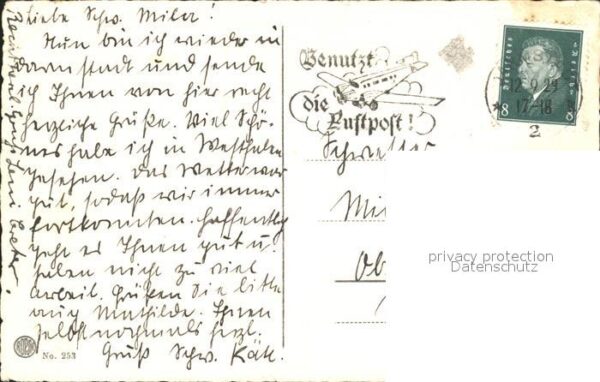 Liebe Schw. Milva!
Nun bin ich wieder in
Darmstadt und sende
ich Ihnen von hier recht
herzliche Grüße. Viel Schö-
nes habe ich in Westfalen
gesehen. Das Wetter war
gut, sodaß wir immer
fortkonnten. Hoffentlich
geht es Ihnen gut u.
haben nicht zu viel
Arbeit. Grüßen Sie bitte
auch Mathilde. Ihnen
selbst nochmals herzl.
Gruß Schw. Käti.
No. 253
Benutzt
die
Luftpost!
Deutsches Reich
8 8
17-18
2
Schwester
Mil
Ob
privacy protection
Datenschutz